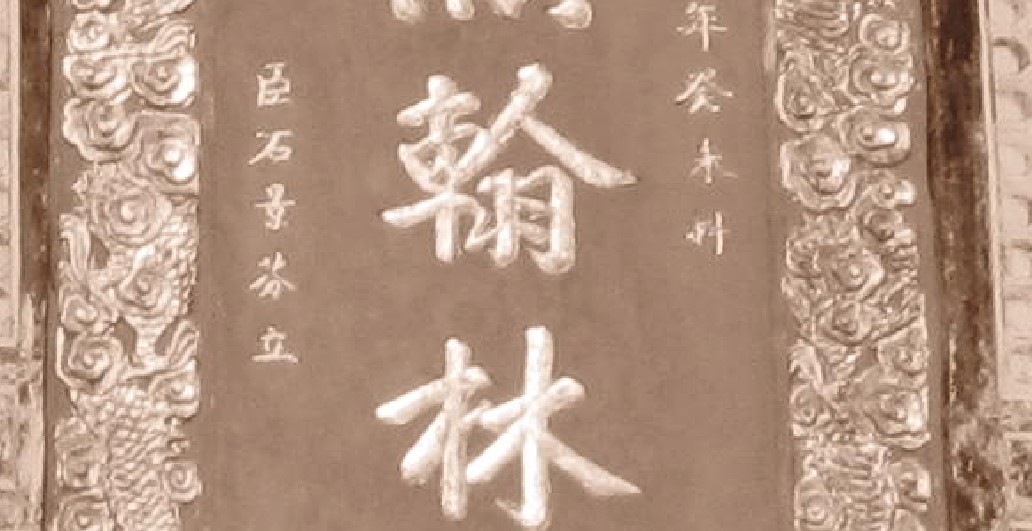 年癸未科
翰林
臣石景芬立